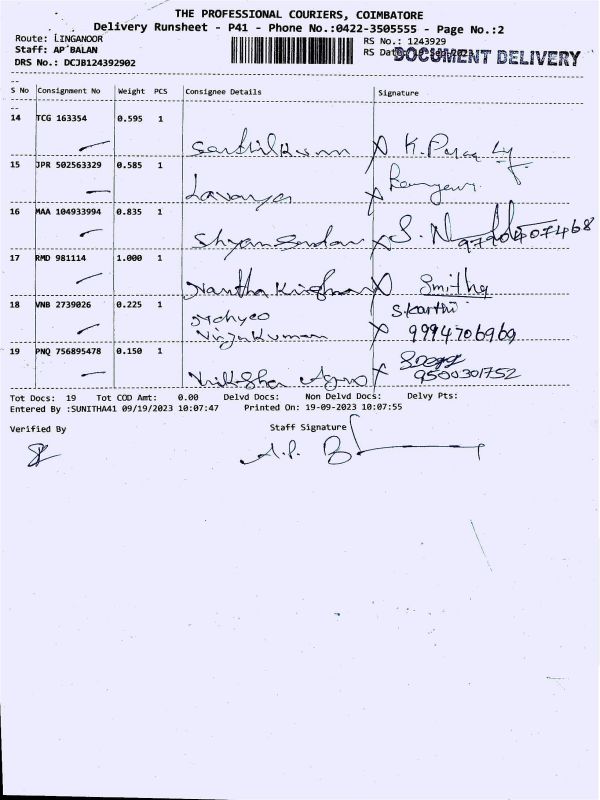 THE PROFESSIONAL COURIERS, COIMBATORE
Delivery Runsheet - P41 - Phone No.:0422-3505555 - Page No.:2
Route: LINGANOOR
RS No.: 1243929
Staff: AP BALAN
RS Date: 19 Sep 2023
DOCUMENT DELIVERY
DRS No.: DCJB124392902
S No Consignment No Weight PCS Consignee Details Signature
14 TCG 163354 0.595 1
Senthilkumar X K.
15 JPR 502563329 0.585 1
Lavanya X
16 MAA 104933994 0.835 1
Shyamsundar X S.
17 RMD 981114 1.000 1
Nantha Krishnan X Smitha
18 VNB 2739026 0.225 1
S.Karthi
X 9994706969
19 PNQ 756895478 0.150 1
Agro X 9500301752
Tot Docs: 19 Tot COD Amt: 0.00 Delvd Docs: Non Delvd Docs: Delvy Pts:
Entered By :SUNITHA41 09/19/2023 10:07:47 Printed On: 19-09-2023 10:07:55
Verified By Staff Signature
A.P. B